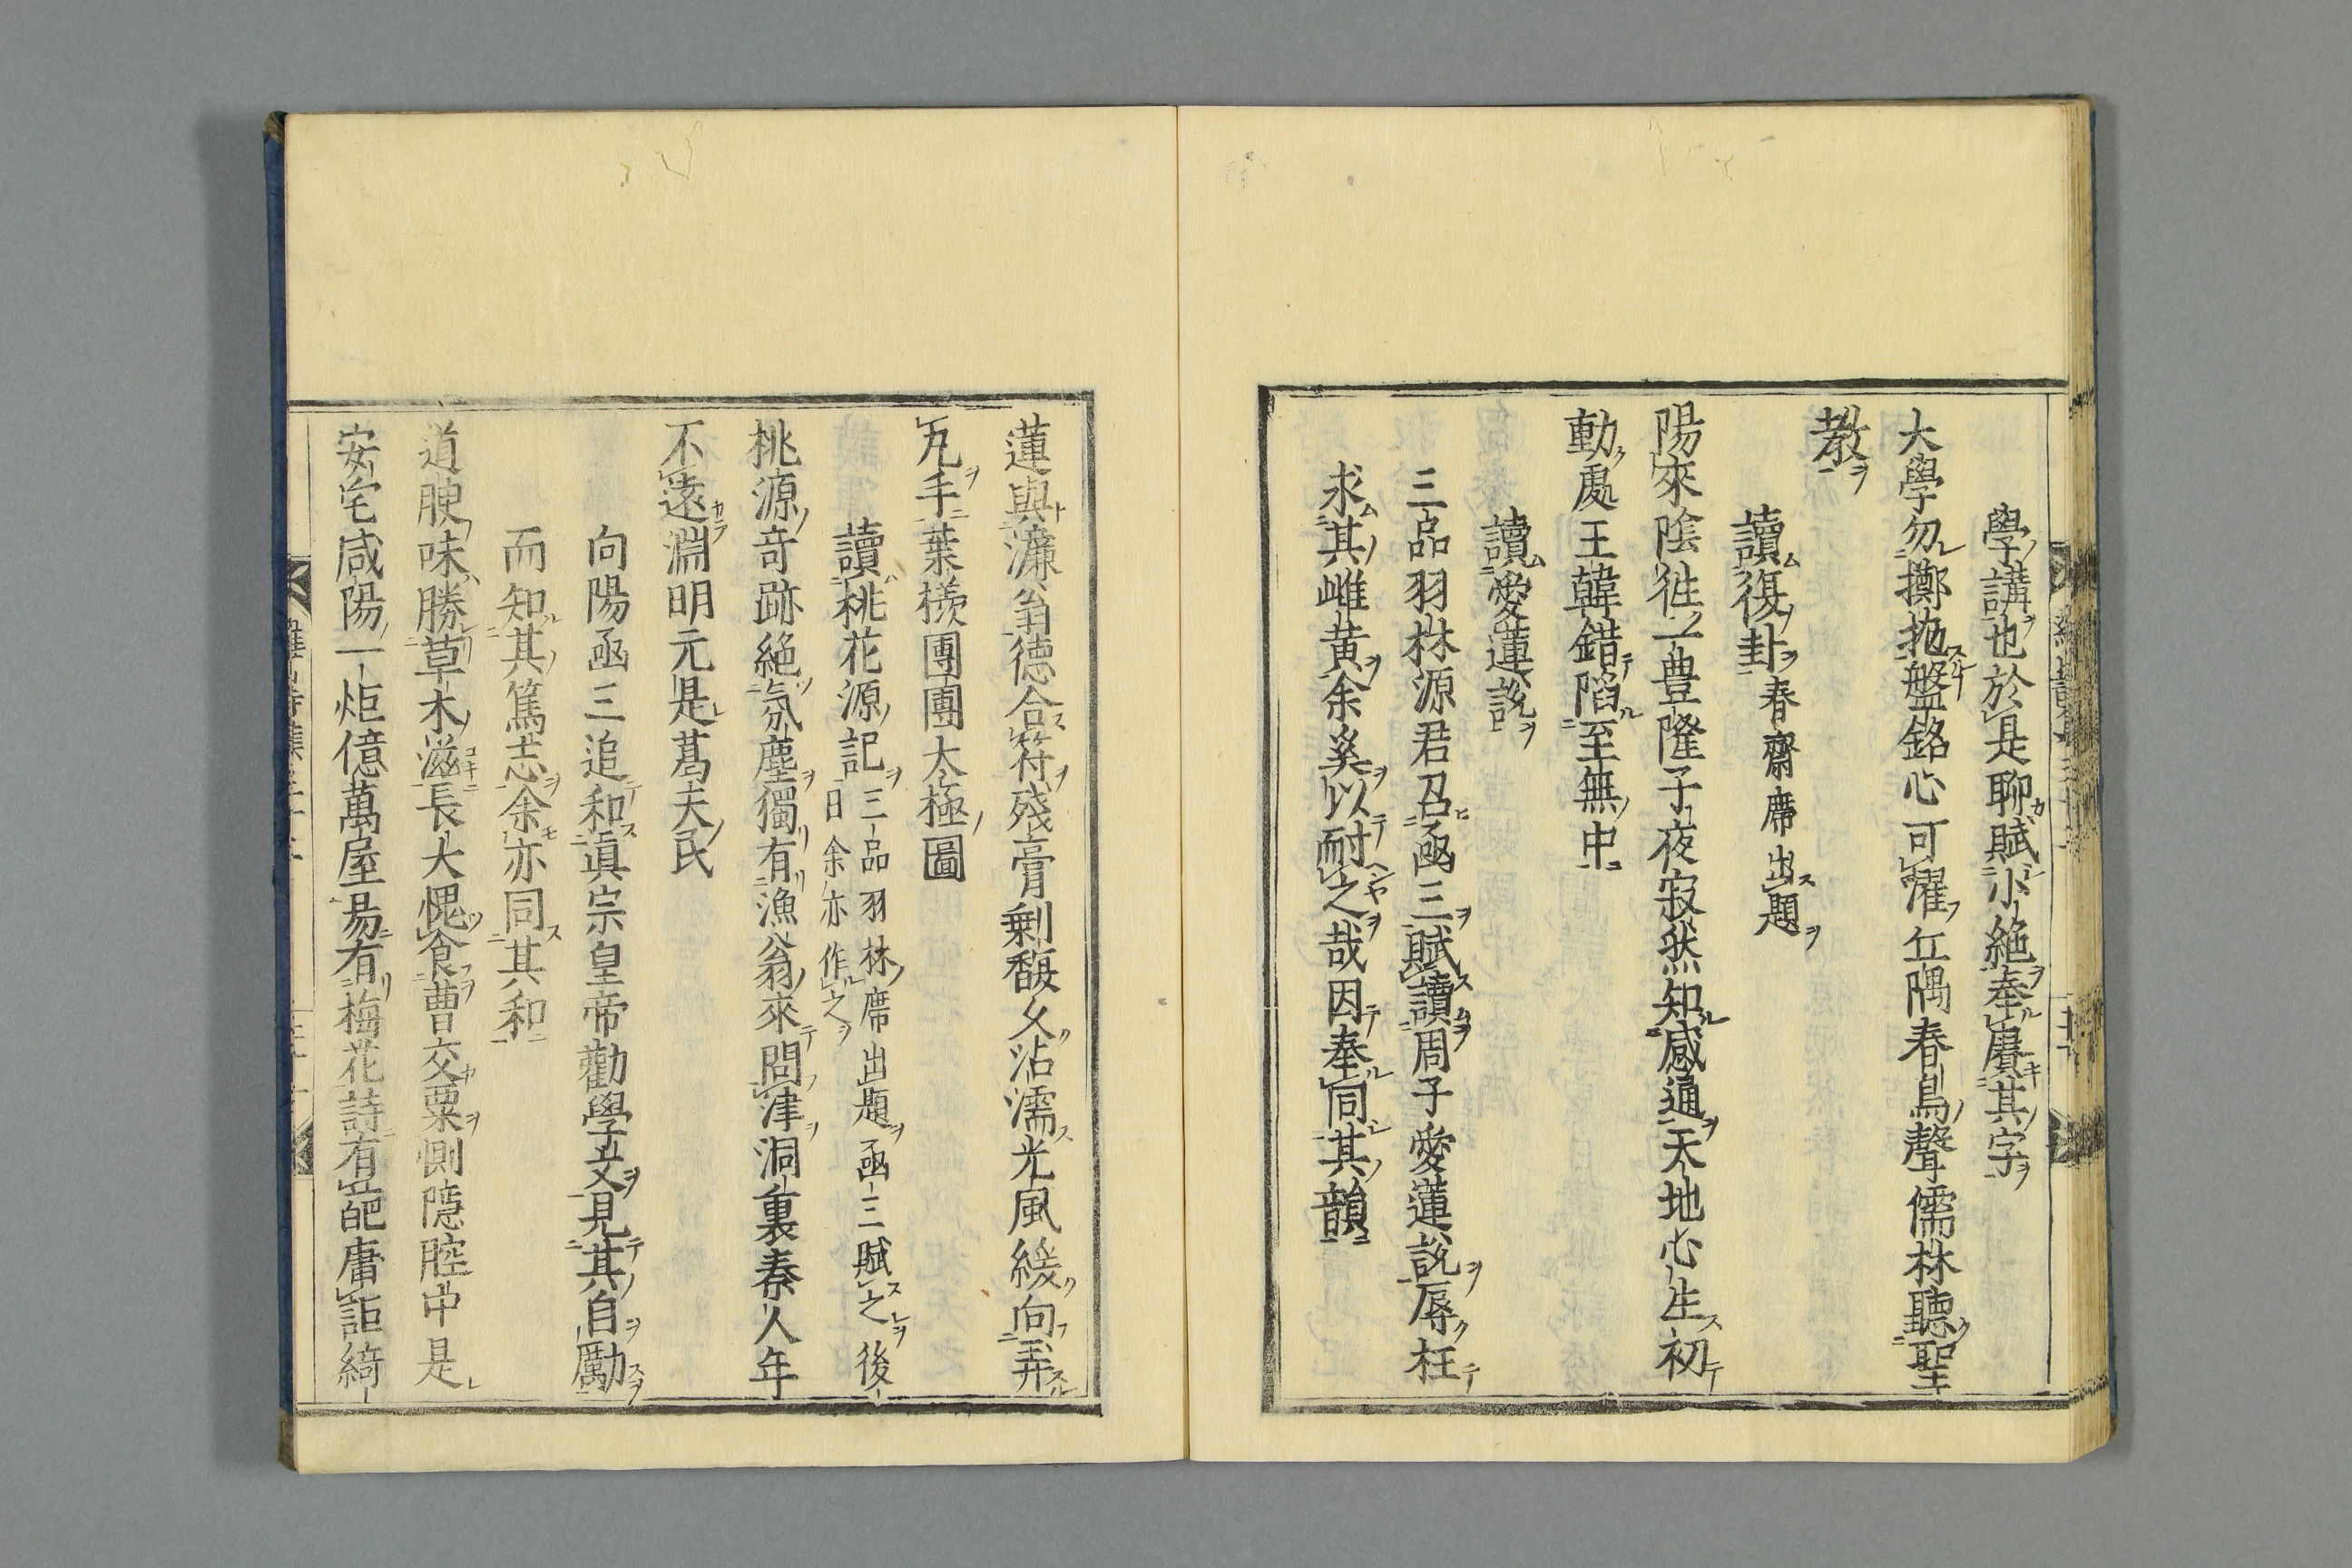 學講也於是聊賦小絶奉賡其字
大學勿擲抛盤銘心可濯丘隅春鳥聲儒林聽聖
教
讀復卦春齋席出題
陽來陰徃一豊隆子夜寂然知感通天地心生初
動處王韓錯陷至無中
讀愛蓮説
三品羽林源君召函三賦讀周子愛蓮説辱枉
求其雌黄余奚以耐之哉因奉同其韻
蓮與濂翁德合符殘膏剰馥久沾濡光風緩向弄
丸手葉様團團太極圖
讀桃花源記三品羽林席出題函三賦之後
日余亦作之
桃源奇跡絶氛塵獨有漁翁來問津洞裏秦人年
不遠淵明元是葛天民
向陽函三追和眞宗皇帝勸學文見其自勵
而知其篤志余亦同其和
道腴味勝草木滋長大愧食曹交粟惻隠腔中是
安宅咸陽一炬億萬屋昜有梅花詩有葩庸詎綺